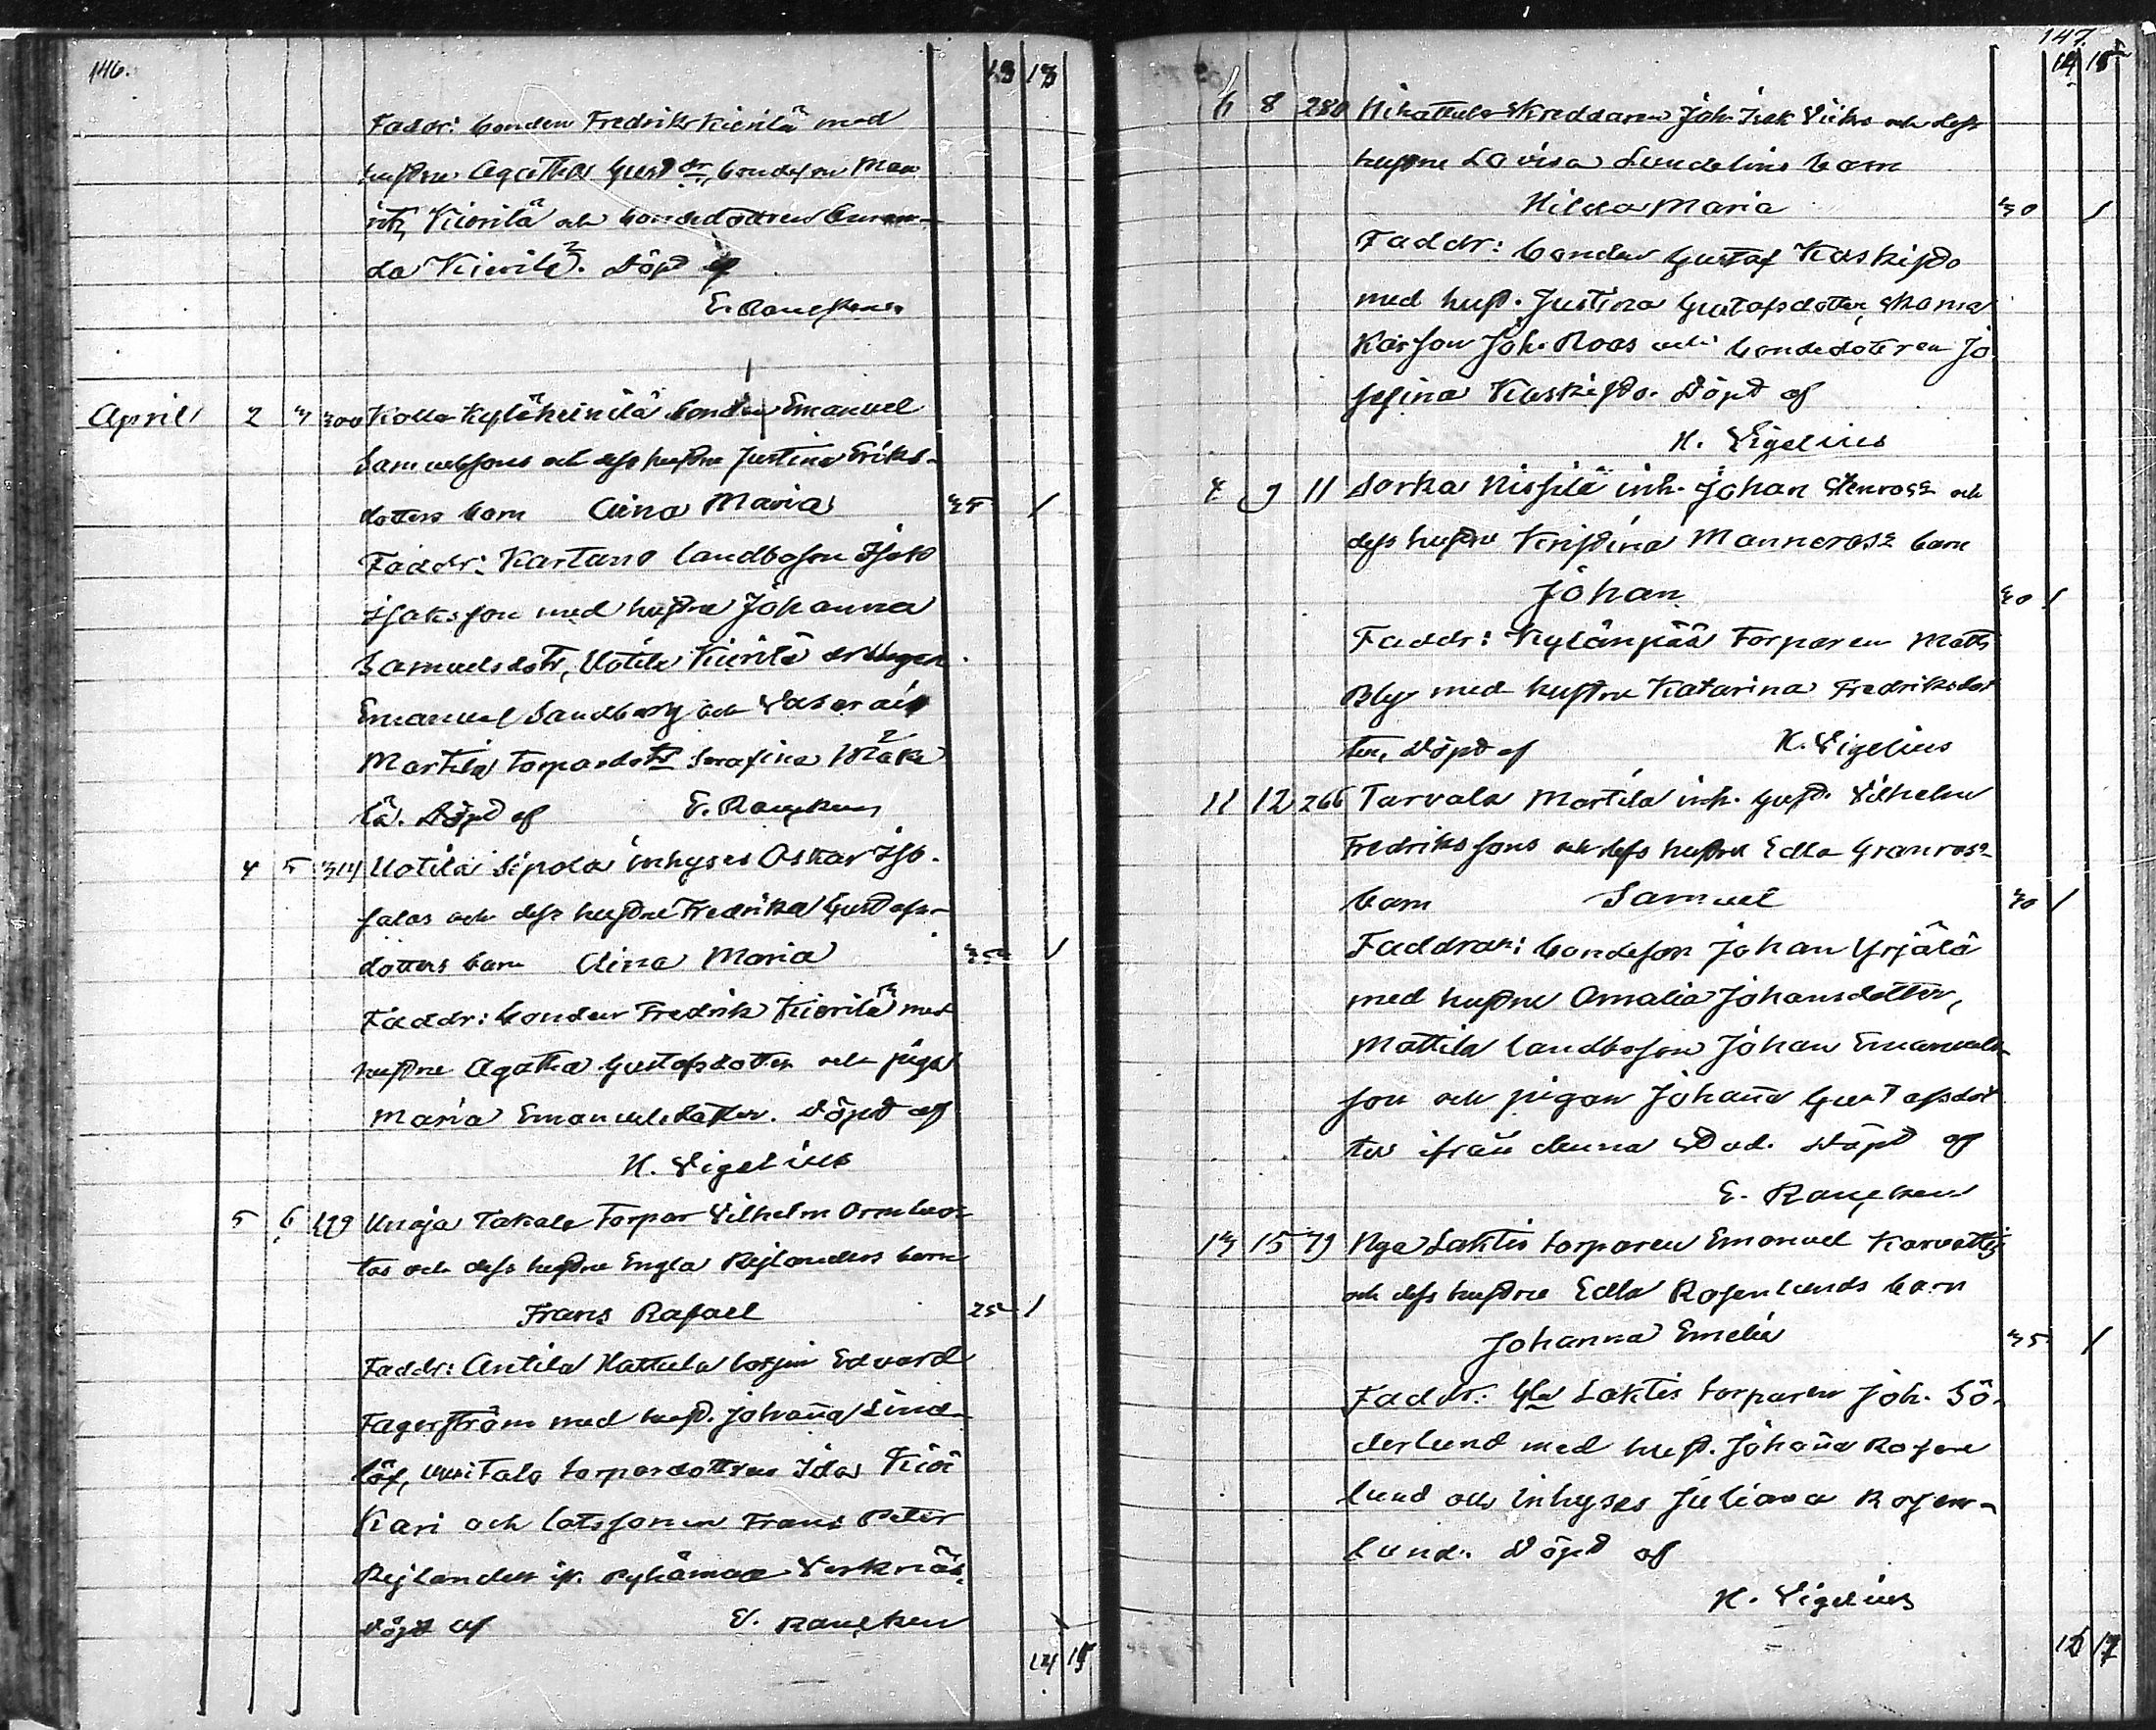 146.
13 13
Faddr: bonden Fredrik Kierilä med
hustru Agatha Gust dr, bondeson Mau
ritz Kierilä och bondedottren Aman-
da Kierilä. Döpt af
E. Rancken
April 2 3 300 Kolla Kyläheinilä bonden Emanuel
Samuelssons och dess hustru Justina Eriks-
dotters barn Aina Maria 35 1
Faddr: Kartano landboson Isak
Isaksson med hustru Johanna
Samuelsdotr, Uotila Kierilä drängen
Emanuel Sandberg och
Martila torparedotr Serafina Mäke
lä. Döpt af E. Rancken
4 5 314 Uotila Sipola inhyses Oskar Iso-
salos och dess hustru Fredrika Gustafs-
dotters barn Aina Maria 35 1
Faddr: bonden Fredrik Kierilä med
hustru Agatha Gustafsdotter och piga
Maria Emanuelsdotter. Döpt af
H. Vigelius
5 6 Unaja Takala torpar Vilhelm Ormluo-
tos och dess hustru Engla Rejlanders barn
Frans Rafael 25 1
Faddr: Antila Hattula Edvard
Fagerström med hust. Johanna Lind-
löf, torparedottren Ida Kivi
Kari och lotssonen Frans Peter
Rejlander fr. Pyhämaa
Döpt af E. Rancken
14 15
147.
14 15
6 8 280 Hihattula Skreddaren Joh. Isak Viiks och dess
hustru Lovisa Sundelins barn
Hilda Maria 30 1
Faddr: bonden Gustaf Kaskisto
med hust. Justina Gustafsdotter,
Karson Joh. Roos och bondedottren Jo
sefina Kaskisto. Döpt af
H. Vigelius
7 9 11 Sorka Nissilä inh. Johan Stenroos och
dess hustru Kristina Manneroos barn
Johan 30 1
Faddr: Kylänpää torparen Matts
Bly med hustru Katarina Fredriksdot
ter, Döpt af H. Vigelius
11 12 266 Tarvola Martila inh. Gust. Vilhelm
Fredrikssons och dess hustru Edla Granroos
barn Samuel 30 1
Faddrar: bondeson Johan Yrjälä
med hustru Amalia Johansdotter,
Mattila landboson Johan Emanuels-
son och pigan Johanna Gustafsdot
ter ifrån denna stad. Döpt af
E. Rancken
13 15 79 Nya Laktis torparen Emanuel Karvattis
och dess hustru Edla Rosenlunds barn
Johanna Emelie 35 1
Faddr: Gla Laktis torparen Joh. Sö-
derlund med hust. Johanna Rosen
lund och inhyses Juliana Rosen-
lund. Döpt af
H. Vigelius
16 17